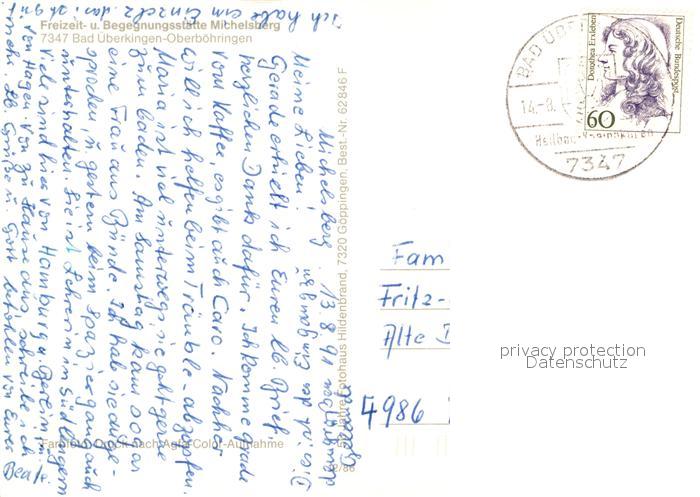 Freizeit- u. Begegnungsstätte Michelsberg
7347 Bad Überkingen-Oberböhringen
Michelsberg, 13.8.91
Meine Lieben!
Gerade erhielt ich Euren lb. Brief
herzlichen Dank dafür. Ich komme gerade
vom Kaffee, es gibt auch Caro. Nachher
will ich helfen beim Träuble-abzupfen.
Maria ist viel unterwegs, sie geht gerne
zum baden. Am Samstag kam sogar
eine Frau aus Bünde. Ich hab sie ange-
sprochen, u. gestern beim Spaziergang auch
unterhalten. Sie ist Lehrerin in Südlengern
viele sind hier von Hamburg u. Bereich, u.
von Hagen. Von zu Hause aus schreibe ich
Lb. Grüße u. Gott befohlen von Eurer
Beate.
ich habe ein Einzelz.
Farbfoto: Druck nach Agfa-Color-Aufnahme
Jahre Fotohaus Hildenbrand, 7320 Göppingen, Best.-Nr. 62846 F
2/86
BAD ÜBE
14.-8.
7347
Deutsche Bundespost
Dorothea Erxleben
60
Fam
Fritz-
Alte
4986
privacy protection
Datenschutz